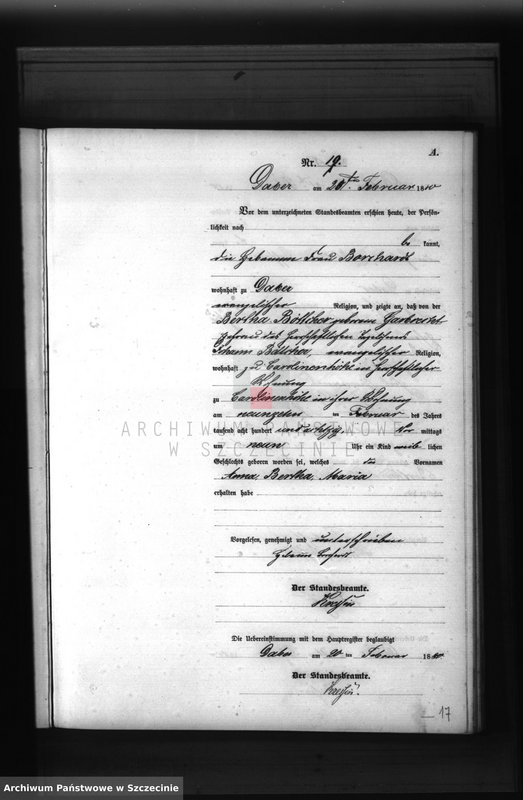 A.
Nr. 19.
Daber am 20ten Februar 1880
Vor dem unterzeichneten Standesbeamten erschien heute, der Persön-
lichkeit nach
be kannt,
die Hebamme Frau Borchardt
wohnhaft zu Daber
evangelischer Religion, und zeigte an, daß von der
Bertha Böttcher geborenen
Ehefrau des herrschaftlichen
Johann Böttcher, evangelischer Religion,
wohnhaft zu Carolinenhütte in herrschaftlicher
Wohnung
zu Carolinenhütte in ihrer Wohnung
am neunzehnten ten Februar des Jahres
tausend acht hundert und achtzig Vor mittags
um neun Uhr ein Kind weib lichen
Geschlechts geboren worden sei, welches die Vornamen
Anna, Bertha, Maria
erhalten habe
Vorgelesen, genehmigt und unterschrieben
Der Standesbeamte.
Die Uebereinstimmung mit dem Hauptregister beglaubigt
Daber am 20 ten Februar 1880
Der Standesbeamte.
17
ARCHIWUM PAŃSTWOWE
W SZCZECINIE
Archiwum Państwowe w Szczecinie